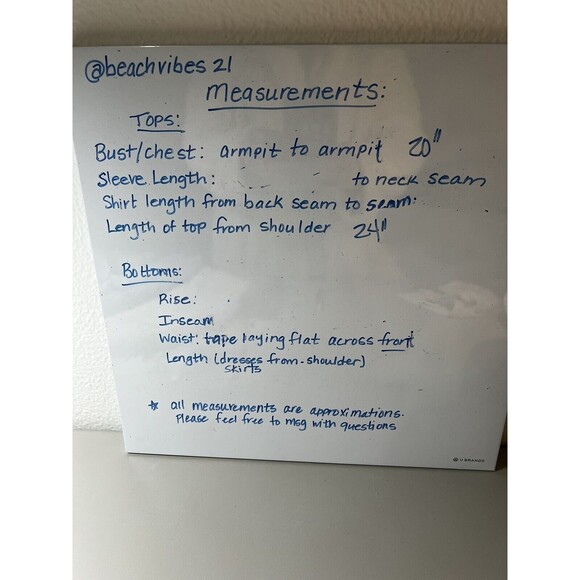 @beachvibes 21
Measurements:
Tops:
Bust/chest: armpit to armpit 20"
Sleeve Length: to neck seam
Shirt length from back seam to seam:
Length of top from shoulder 24"
Bottoms:
Rise:
Inseam
Waist: tape laying flat across front
Length (dresses from-shoulder)
skirts
* all measurements are approximations.
Please feel free to msg with questions
U BRANDS